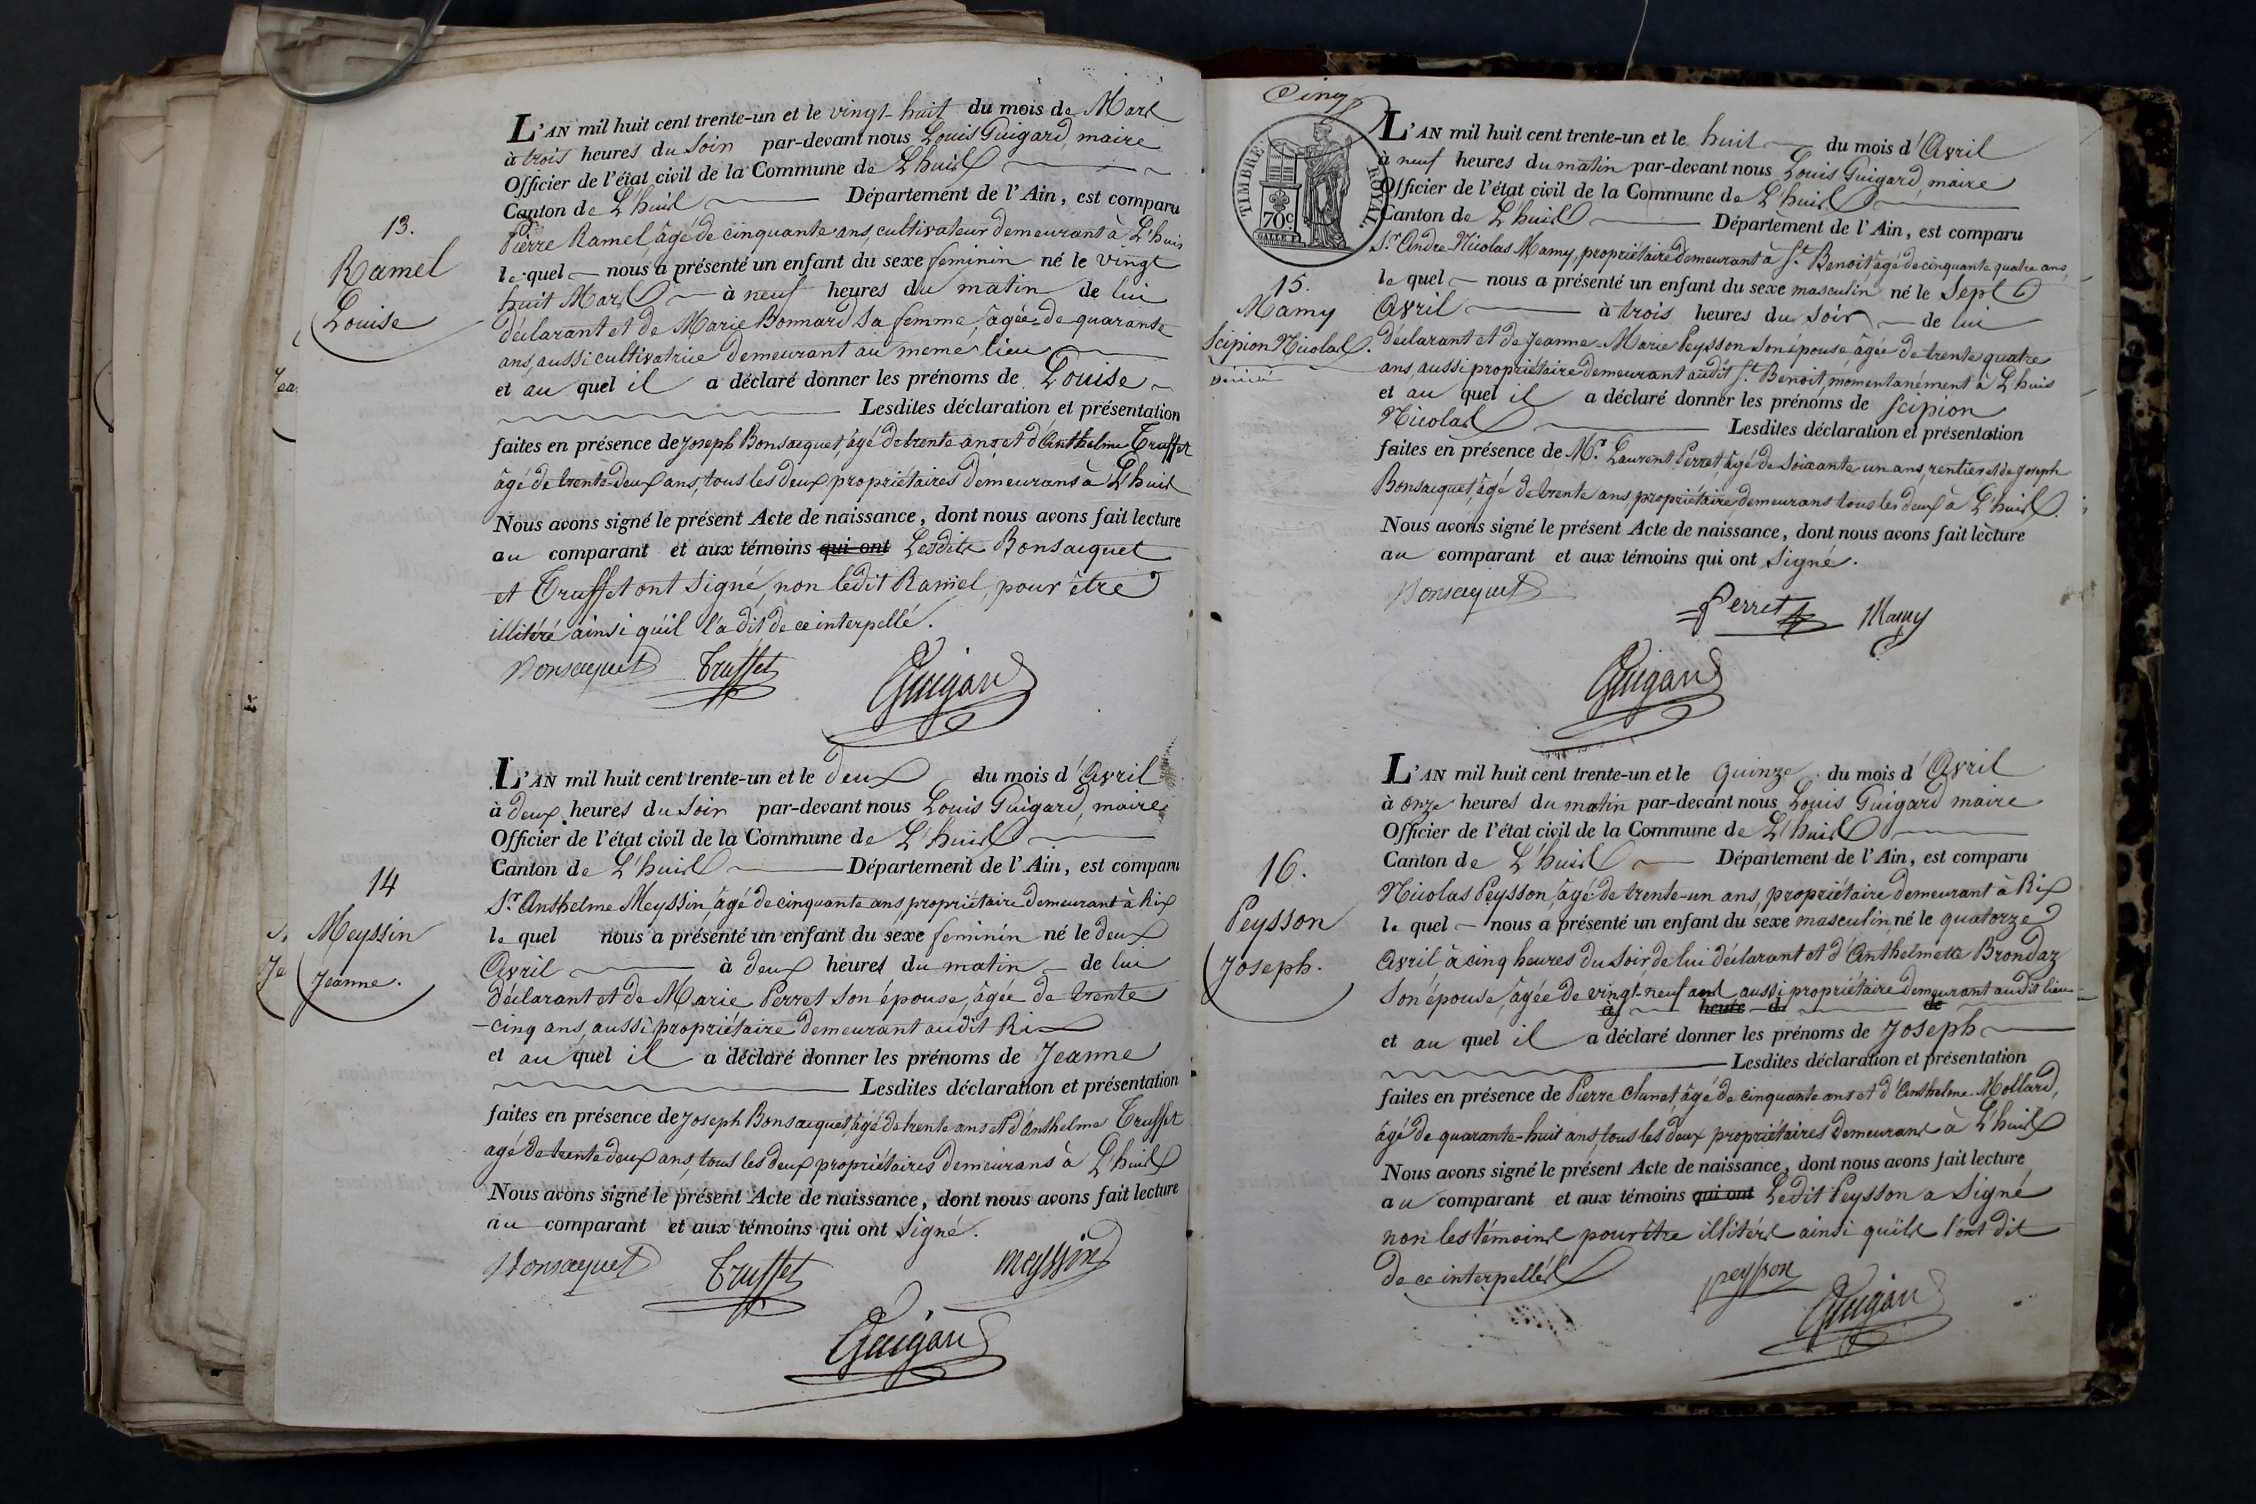 13.
Ramel
Louise
L'AN mil huit cent trente-un et le vingt-huit du mois de Mars
à trois heures du soir par-devant nous Louis Guigard, maire
Officier de l'état civil de la Commune de L'huis
Canton de L'huis Département de l'Ain, est comparu
Pierre Ramel, âgé de cinquante ans, cultivateur demeurant à L'huis
le quel nous a présenté un enfant du sexe feminin né le vingt
huit Mars à neuf heures du matin de lui
déclarant et de Marie Bonnard sa femme, âgée de quarante
ans, aussi cultivatrice demeurant au meme lieu
et au quel il a déclaré donner les prénoms de Louise
Lesdites déclaration et présentation
faites en présence de Joseph Bonsacquet, âgé de trente ans et d'Anthelme Truffet
âgé de trente-deux ans, tous les deux propriétaires demeurans à L'huis
Nous avons signé le présent Acte de naissance, dont nous avons fait lecture
au comparant et aux témoins qui ont Lesdits Bonsacquet
et Truffet ont signé, non ledit Ramel, pour être
illitéré ainsi qu'il l'a dit de ce interpellé.
Bonsacquet Truffet
Guigard
14
Meyssin
Jeanne.
L'AN mil huit cent trente-un et le deux du mois d'Avril
à deux heures du soir par-devant nous Louis Guigard, maire
Officier de l'état civil de la Commune de L'huis
Canton de L'huis Département de l'Ain, est comparu
Sr. Anthelme Meyssin, âgé de cinquante ans, propriétaire demeurant à Rix
le quel nous a présenté un enfant du sexe feminin né le deux
Avril à deux heures du matin de lui
déclarant et de Marie Perret son épouse, âgée de trente
-cinq ans, aussi propriétaire demeurant audit Rix
et au quel il a déclaré donner les prénoms de Jeanne
Lesdites déclaration et présentation
faites en présence de Joseph Bonsacquet, âgé de trente ans et d'Anthelme Truffet
agé de trente deux ans, tous les deux propriétaires demeurans à L'huis
Nous avons signé le présent Acte de naissance, dont nous avons fait lecture
au comparant et aux témoins qui ont signé.
Bonsacquet Truffet meyssin
Guigard
Cinq
TIMBRE ROYAL
70 c.
15.
Mamy
Scipion Nicolas.
L'AN mil huit cent trente-un et le huit du mois d'Avril
à neuf heures du matin par-devant nous Louis Guigard, maire
Officier de l'état civil de la Commune de L'huis
Canton de L'huis Département de l'Ain, est comparu
Sr. Andre Nicolas Mamy, propriétaire demeurant à St. Benoit, âgé de cinquante quatre ans,
le quel nous a présenté un enfant du sexe masculin né le Sept
Avril à trois heures du soir de lui
déclarant et de Jeanne-Marie Peysson son épouse, âgée de trente quatre
ans, aussi propriétaire demeurant audit St. Benoit, momentanément à L'huis
et au quel il a déclaré donner les prénoms de Scipion
Nicolas Lesdites déclaration et présentation
faites en présence de Mr. Laurent Perret âgé de soixante un ans, rentier et de Joseph
Bonsacquet, âgé de trente ans propriétaire demeurans tous les deux à L'huis.
Nous avons signé le présent Acte de naissance, dont nous avons fait lecture
au comparant et aux témoins qui ont signé.
Bonsacquet Perret Mamy
Guigard
16.
Peysson
Joseph.
L'AN mil huit cent trente-un et le quinze du mois d'Avril
à onze heures du matin par-devant nous Louis Guigard maire
Officier de l'état civil de la Commune de L'huis
Canton de L'huis Département de l'Ain, est comparu
Nicolas Peysson, âgé de trente-un ans, propriétaire demeurant à Rix
le quel nous a présenté un enfant du sexe masculin, né le quatorze
Avril à cinq heures du soir de lui déclarant et d'Anthelmette Brondaz
son épouse, âgée de vingt-neuf ans aussi propriétaire demeurant audit lieu
à heure d de
et au quel il a déclaré donner les prénoms de Joseph
Lesdites déclaration et présentation
faites en présence de Pierre Clunet âgé de cinquante ans et d'Anthelme Mollard,
âgé de quarante-huit ans, tous les deux propriétaires demeurans à L'huis
Nous avons signé le présent Acte de naissance, dont nous avons fait lecture
au comparant et aux témoins qui ont Ledit Peysson a signé
non les témoins pour être illitérés ainsi qu'ils l'ont dit
de ce interpellés
peysson
Guigard